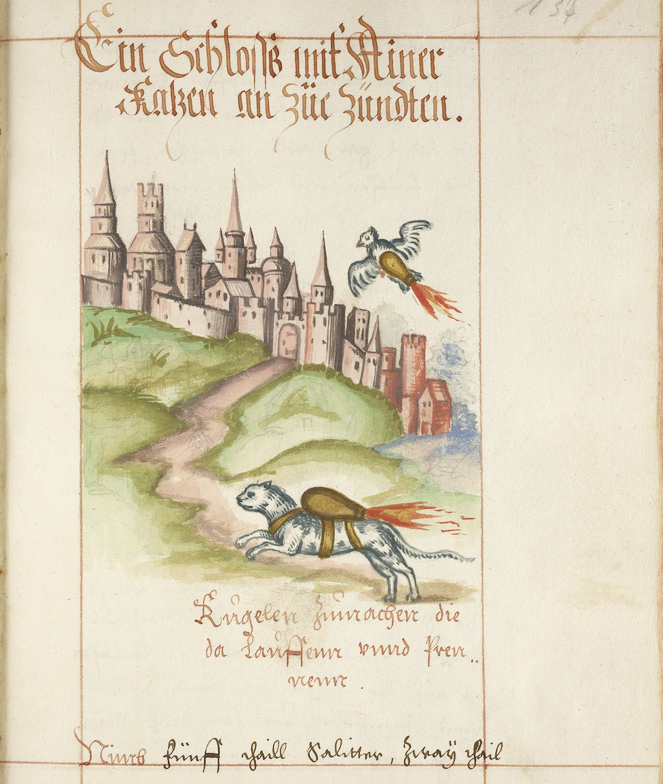 134
Ein Schloss mit Ainer
Katzen an Züe Zündten.
Kugelen Zumachen die
da Lauffenn vnnd Pren„
nenn.
Nimb fünff thaill Salitter, Zway thail